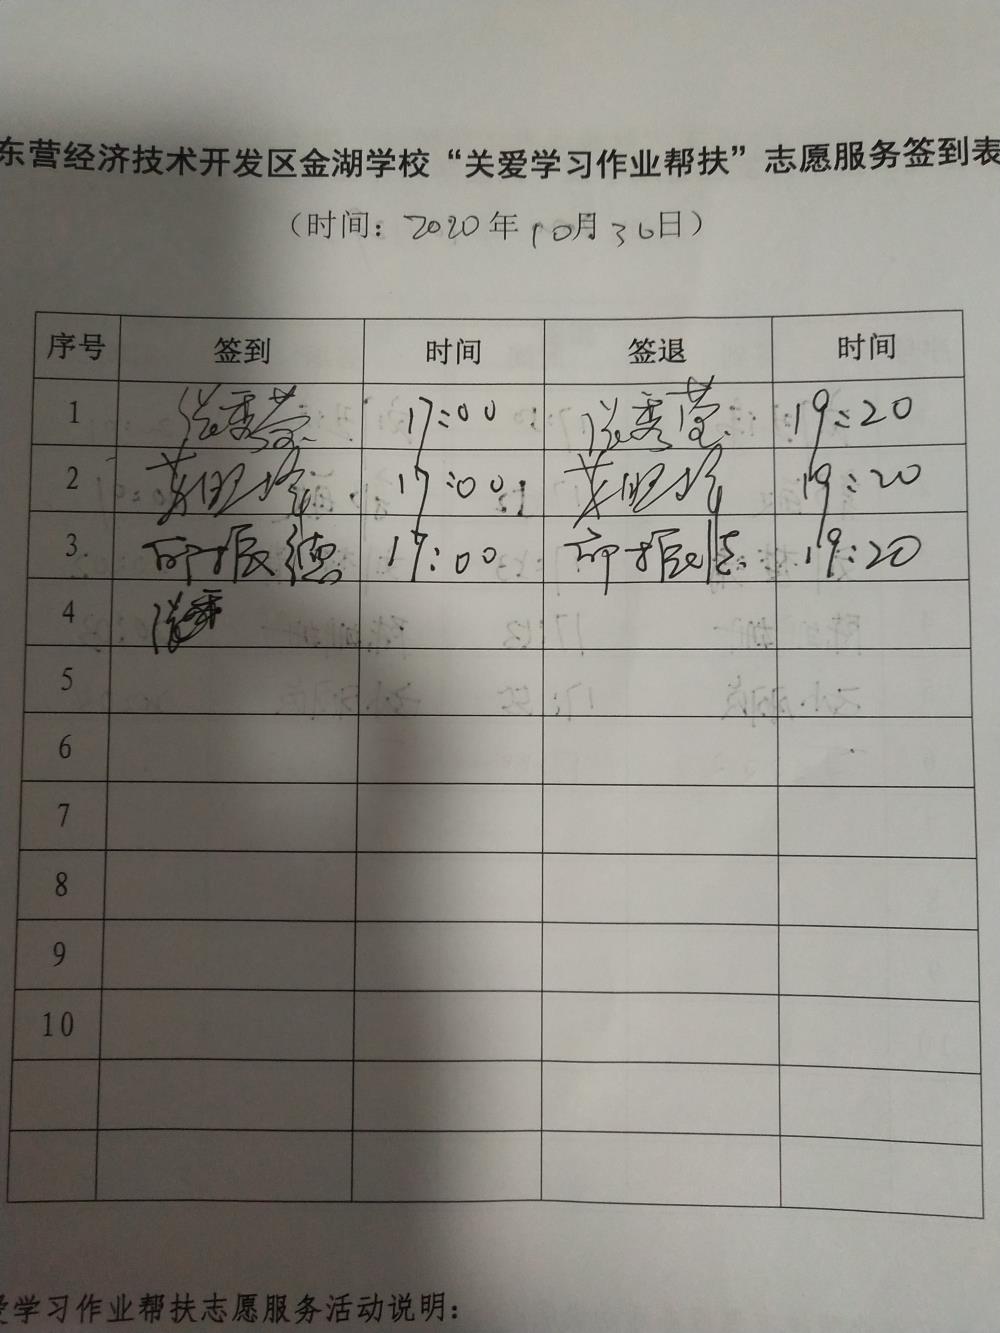 东营经济技术开发区金湖学校“关爱学习作业帮扶”志愿服务签到表
（时间：2020年10月30日）
序号 签到 时间 签退 时间
1 张秀莹 17:00 张秀莹 19:20
2 17:00 19:20
3 振德 17:00 振德 19:20
4
5
6
7
8
9
10
爱学习作业帮扶志愿服务活动说明：